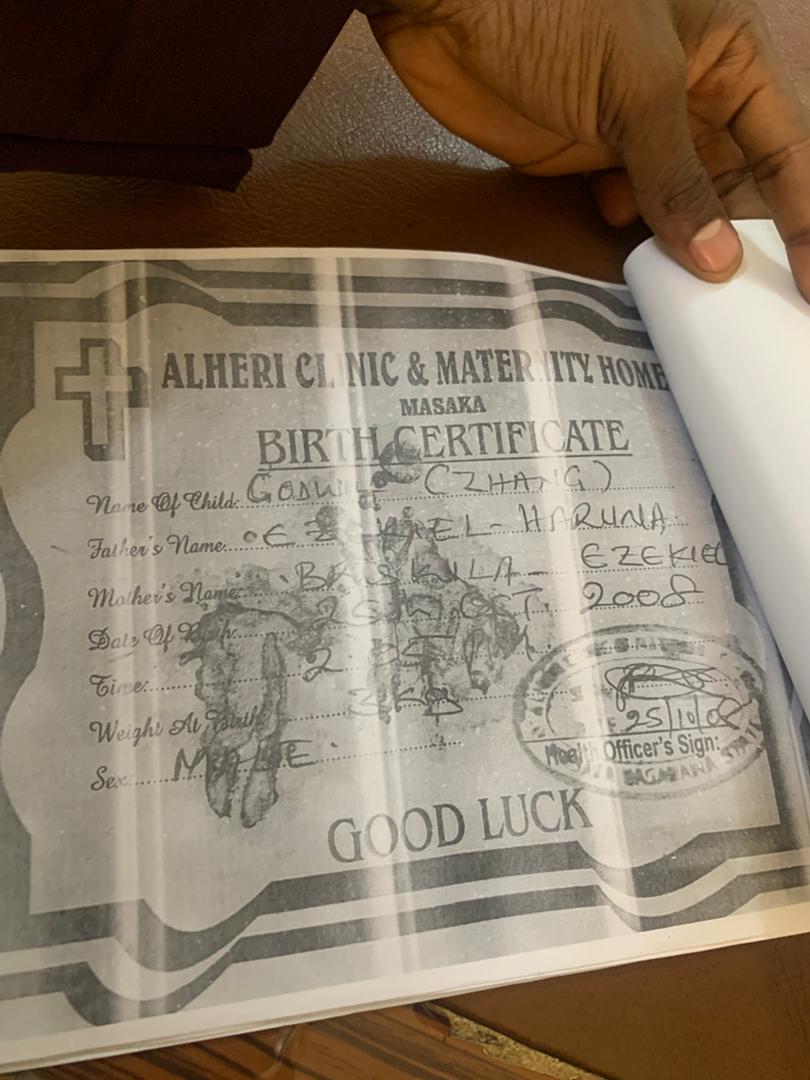 ALHERI CLINIC & MATERNITY HOME
MASAKA
BIRTH CERTIFICATE
Name Of Child: GODWILL (ZHANG)
Father's Name: EZEKIEL - HARUNA
Mother's Name: EZEKIEL
Date Of Birth: 25TH OCT. 2008
Time:
Weight At Birth:
Sex: MALE.
25/10/08
Health Officer's Sign:
GOOD LUCK